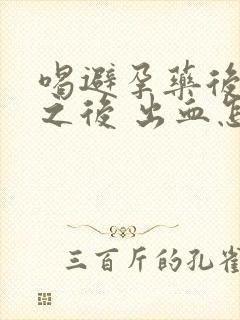 喝避孕藥後
之後 出血怎
三百斤的孔雀